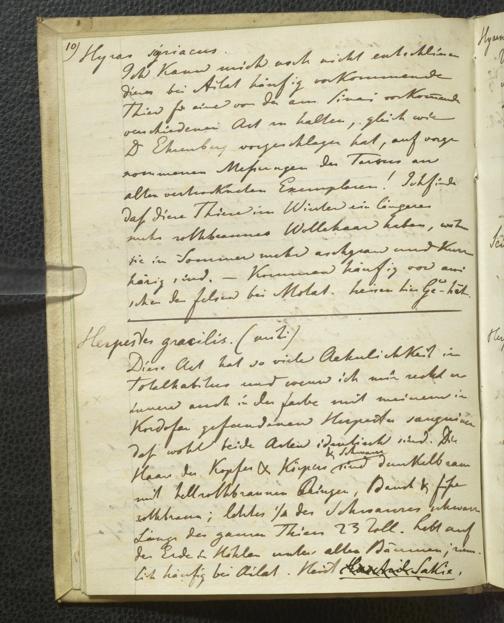 10)
Hyrax syriacus.
Ich kann mich noch nicht entschliesen
dieses bei Ailat häufig vorkommende
Thier für eine von der am Sinai vorkommenden
verschiedenen Art zu halten, gleich wie
Dr Ehrenberg vorgeschlagen hat, auf vorge
nommenen Messungen des Tarsus an
alten vertrockneten Exemplaren! Ich finde
daß diese Thiere im Winter ein längeres
mehr rothbraunes Wollehaar haben, während
sie im Sommer mehr aschgrau und kurz
härig sind. — Kommen häufig vor zwi
schen den felsen bei Molat. heisen hier
Herpestes gracilis. (mihi)
Diese Art hat so viele Aehnlichkeit im
Totalhabitus und wenn ich mich recht er
innere auch in der farbe mit meinem in
Kordofan gefundenen Herpestes sanguineus
daß wohl beide Arten identisch sind. Die
Haare des Kopfes & Körpers & Schwanz sind dunkelbraun
mit hellrothbraunen Ringen, Bauch & füße
rothbraun; letztes 1/3 des Schwanzes schwarz
Länge des ganzen Thiers 23 Zoll. Lebt auf
der Erde in Höhlen unter alten Bäumen; ziem
lich häufig bei Ailat. Heist Sakie.